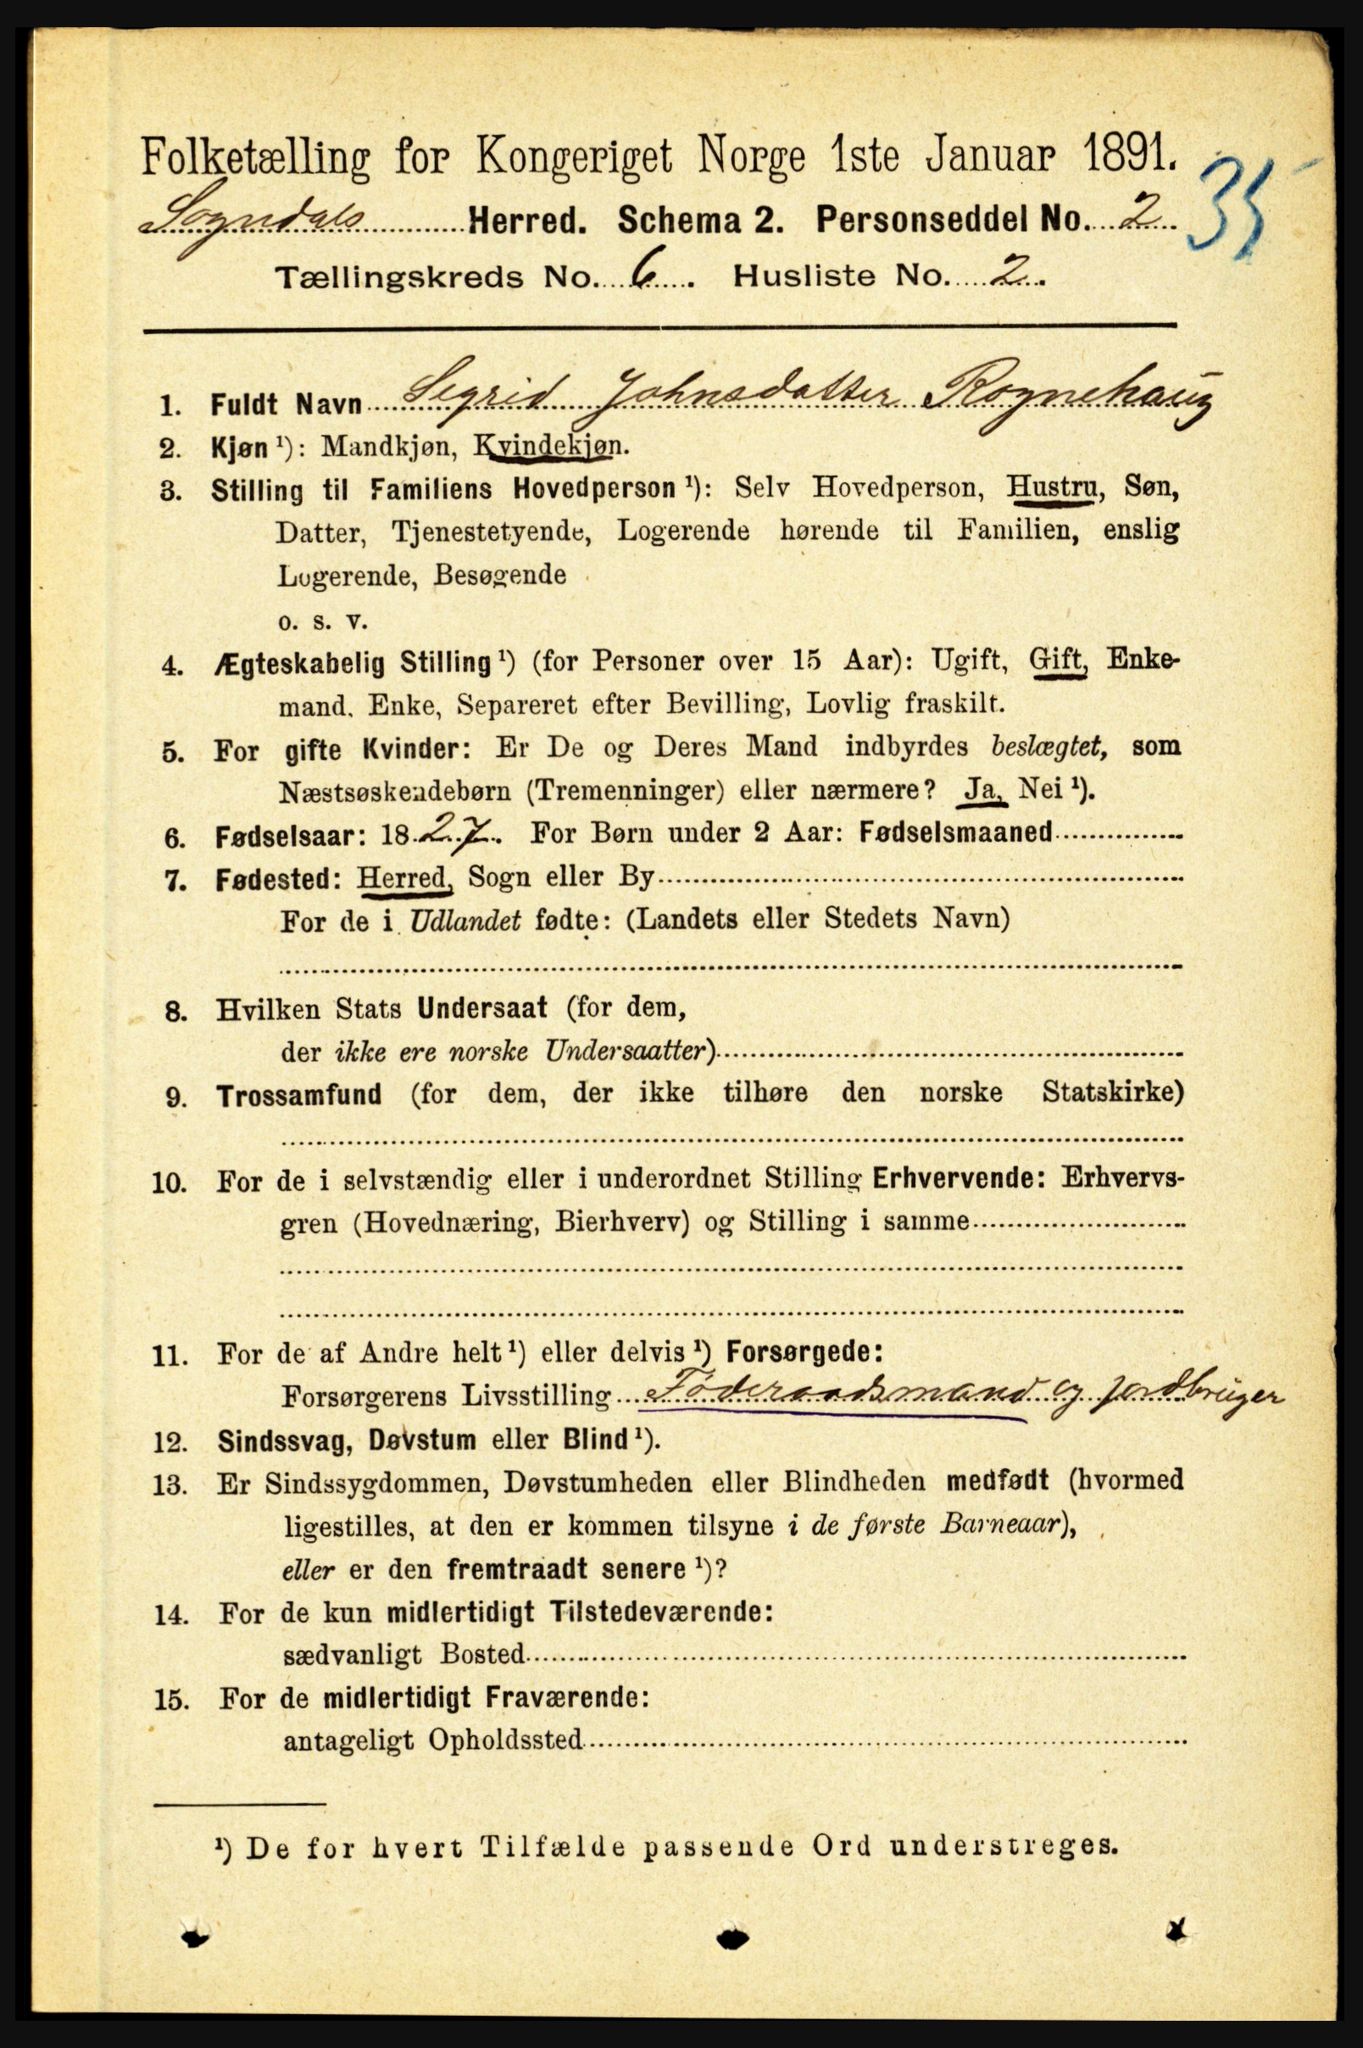 Folketælling for Kongeriget Norge 1ste Januar 1891.
35
Sogndals Herred. Schema 2. Personseddel No. 2.
Tællingskreds No. 6. Husliste No. 2.
1. Fuldt Navn Sigrid Johnsdatter Rognehaug
2. Kjøn ¹): Mandkjøn, Kvindekjøn.
3. Stilling til Familiens Hovedperson ¹): Selv Hovedperson, Hustru, Søn,
Datter, Tjenestetyende, Logerende hørende til Familien, enslig
Logerende, Besøgende
o. s. v.
4. Ægteskabelig Stilling ¹) (for Personer over 15 Aar): Ugift, Gift, Enke-
mand, Enke, Separeret efter Bevilling, Lovlig fraskilt.
5. For gifte Kvinder: Er De og Deres Mand indbyrdes beslægtet, som
Næstsøskendebørn (Tremenninger) eller nærmere? Ja, Nei ¹).
6. Fødselsaar: 1827. For Børn under 2 Aar: Fødselsmaaned
7. Fødested: Herred, Sogn eller By
For de i Udlandet fødte: (Landets eller Stedets Navn)
8. Hvilken Stats Undersaat (for dem,
der ikke ere norske Undersaatter)
9. Trossamfund (for dem, der ikke tilhøre den norske Statskirke)
10. For de i selvstændig eller i underordnet Stilling Erhvervende: Erhvervs-
gren (Hovednæring, Bierhverv) og Stilling i samme
11. For de af Andre helt ¹) eller delvis ¹) Forsørgede:
Forsørgerens Livsstilling Føderaadsmand og jordbruger
12. Sindssvag, Døvstum eller Blind ¹).
13. Er Sindssygdommen, Døvstumheden eller Blindheden medfødt (hvormed
ligestilles, at den er kommen tilsyne i de første Barneaar),
eller er den fremtraadt senere ¹)?
14. For de kun midlertidigt Tilstedeværende:
sædvanligt Bosted
15. For de midlertidigt Fraværende:
antageligt Opholdssted
¹) De for hvert Tilfælde passende Ord understreges.